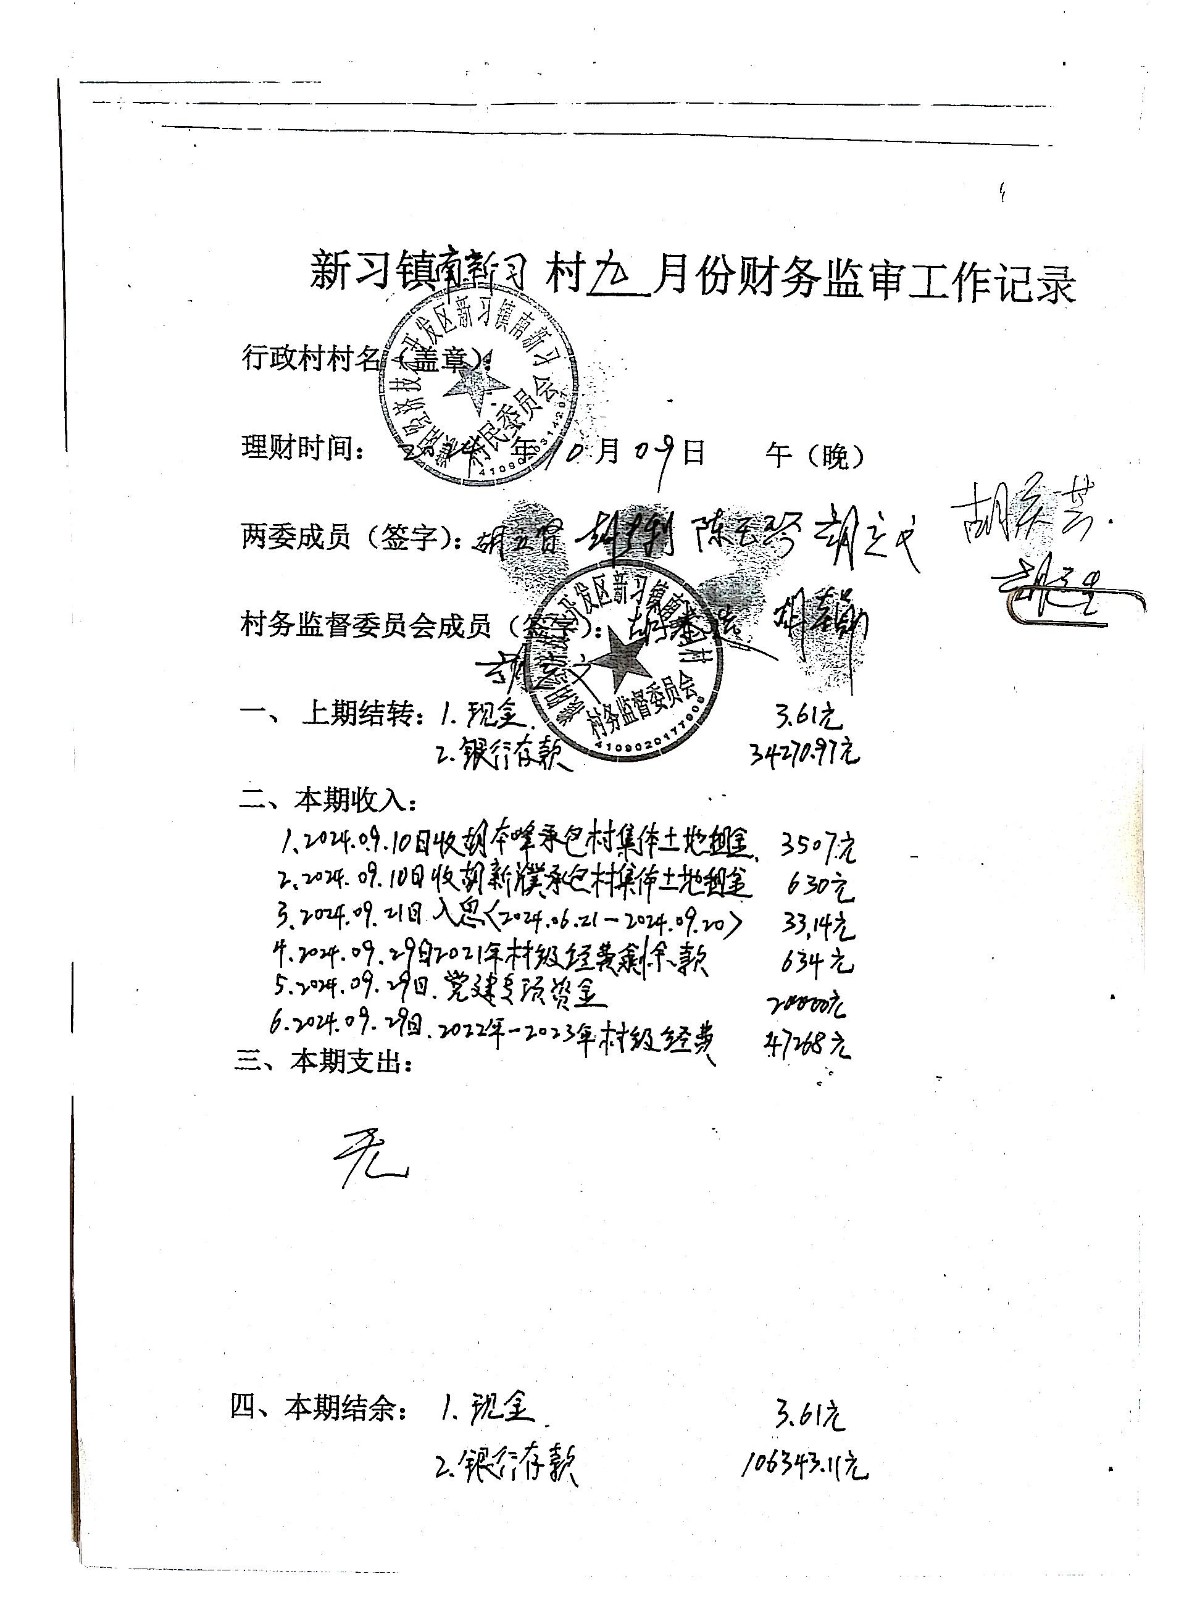 新习镇南新习村九月份财务监审工作记录
行政村村名（盖章）：
理财时间： 2024年10月09日 午（晚）
两委成员（签字）：
村务监督委员会成员（签字）：
一、上期结转：1.现金 3.61元
2.银行存款 34270.97元
二、本期收入：
1.2024.09.10日收胡本峰承包村集体土地租金 3507元
2.2024.09.10日收胡新濮承包村集体土地租金 630元
3.2024.09.21日入息<2024.06.21-2024.09.20> 33.14元
4.2024.09.29日2021年村级经费剩余款 634元
5.2024.09.29日.党建专项资金 20000元
6.2024.09.29日.2022年-2023年村级经费 47268元
三、本期支出：
无
四、本期结余： 1.现金 3.61元
2.银行存款 106343.11元